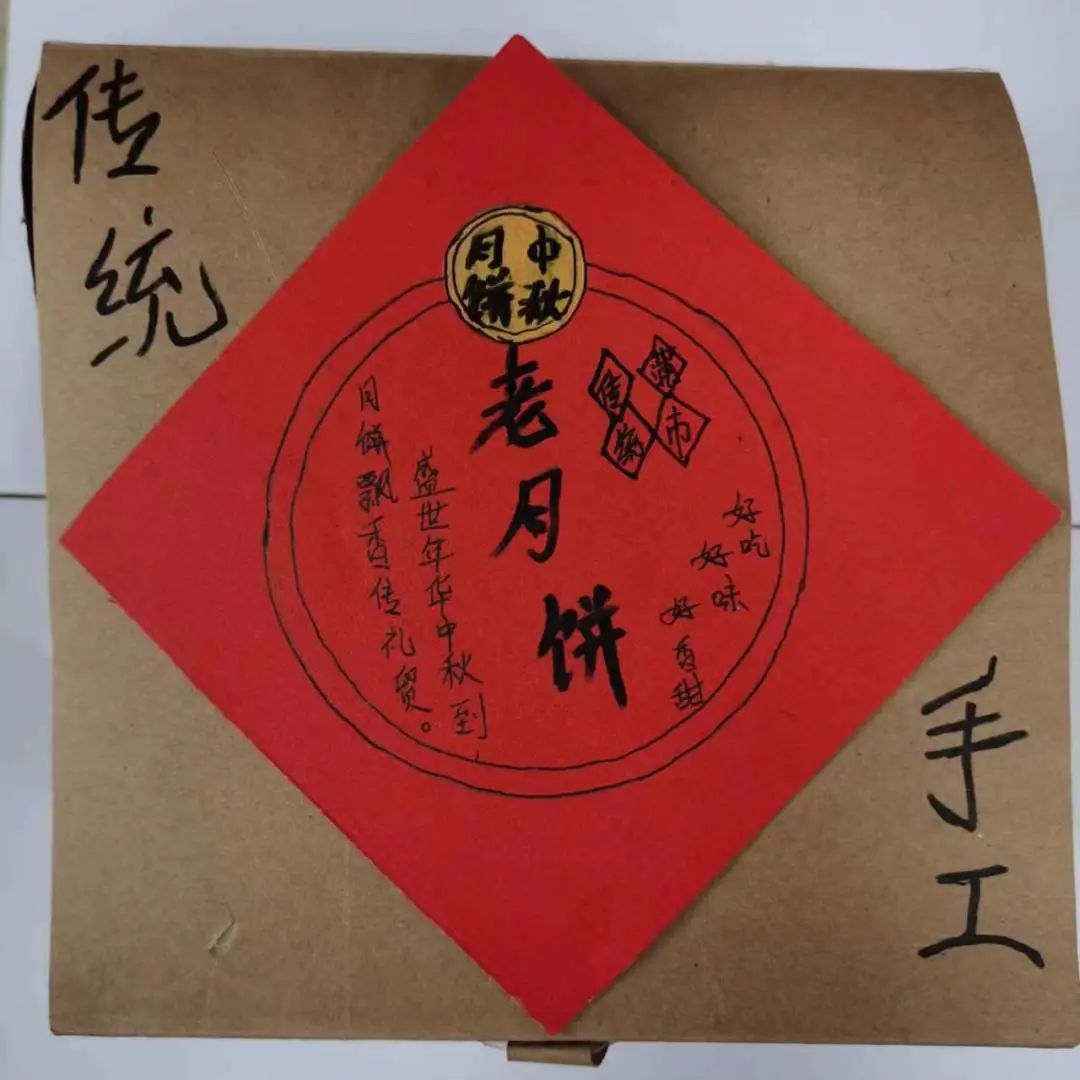 传统
中秋
月饼
蒲市
传统
老月饼
好吃
好味
好香甜
盛世年华中秋到
月饼飘香传礼贺。
手工